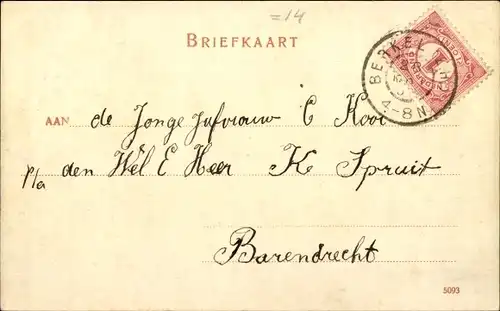 =14
BRIEFKAART
BERKEL
4-8N
AAN de Jonge Jufvrouw C Kooi
p/a den Wel E Heer K Spruit
Barendrecht
5093